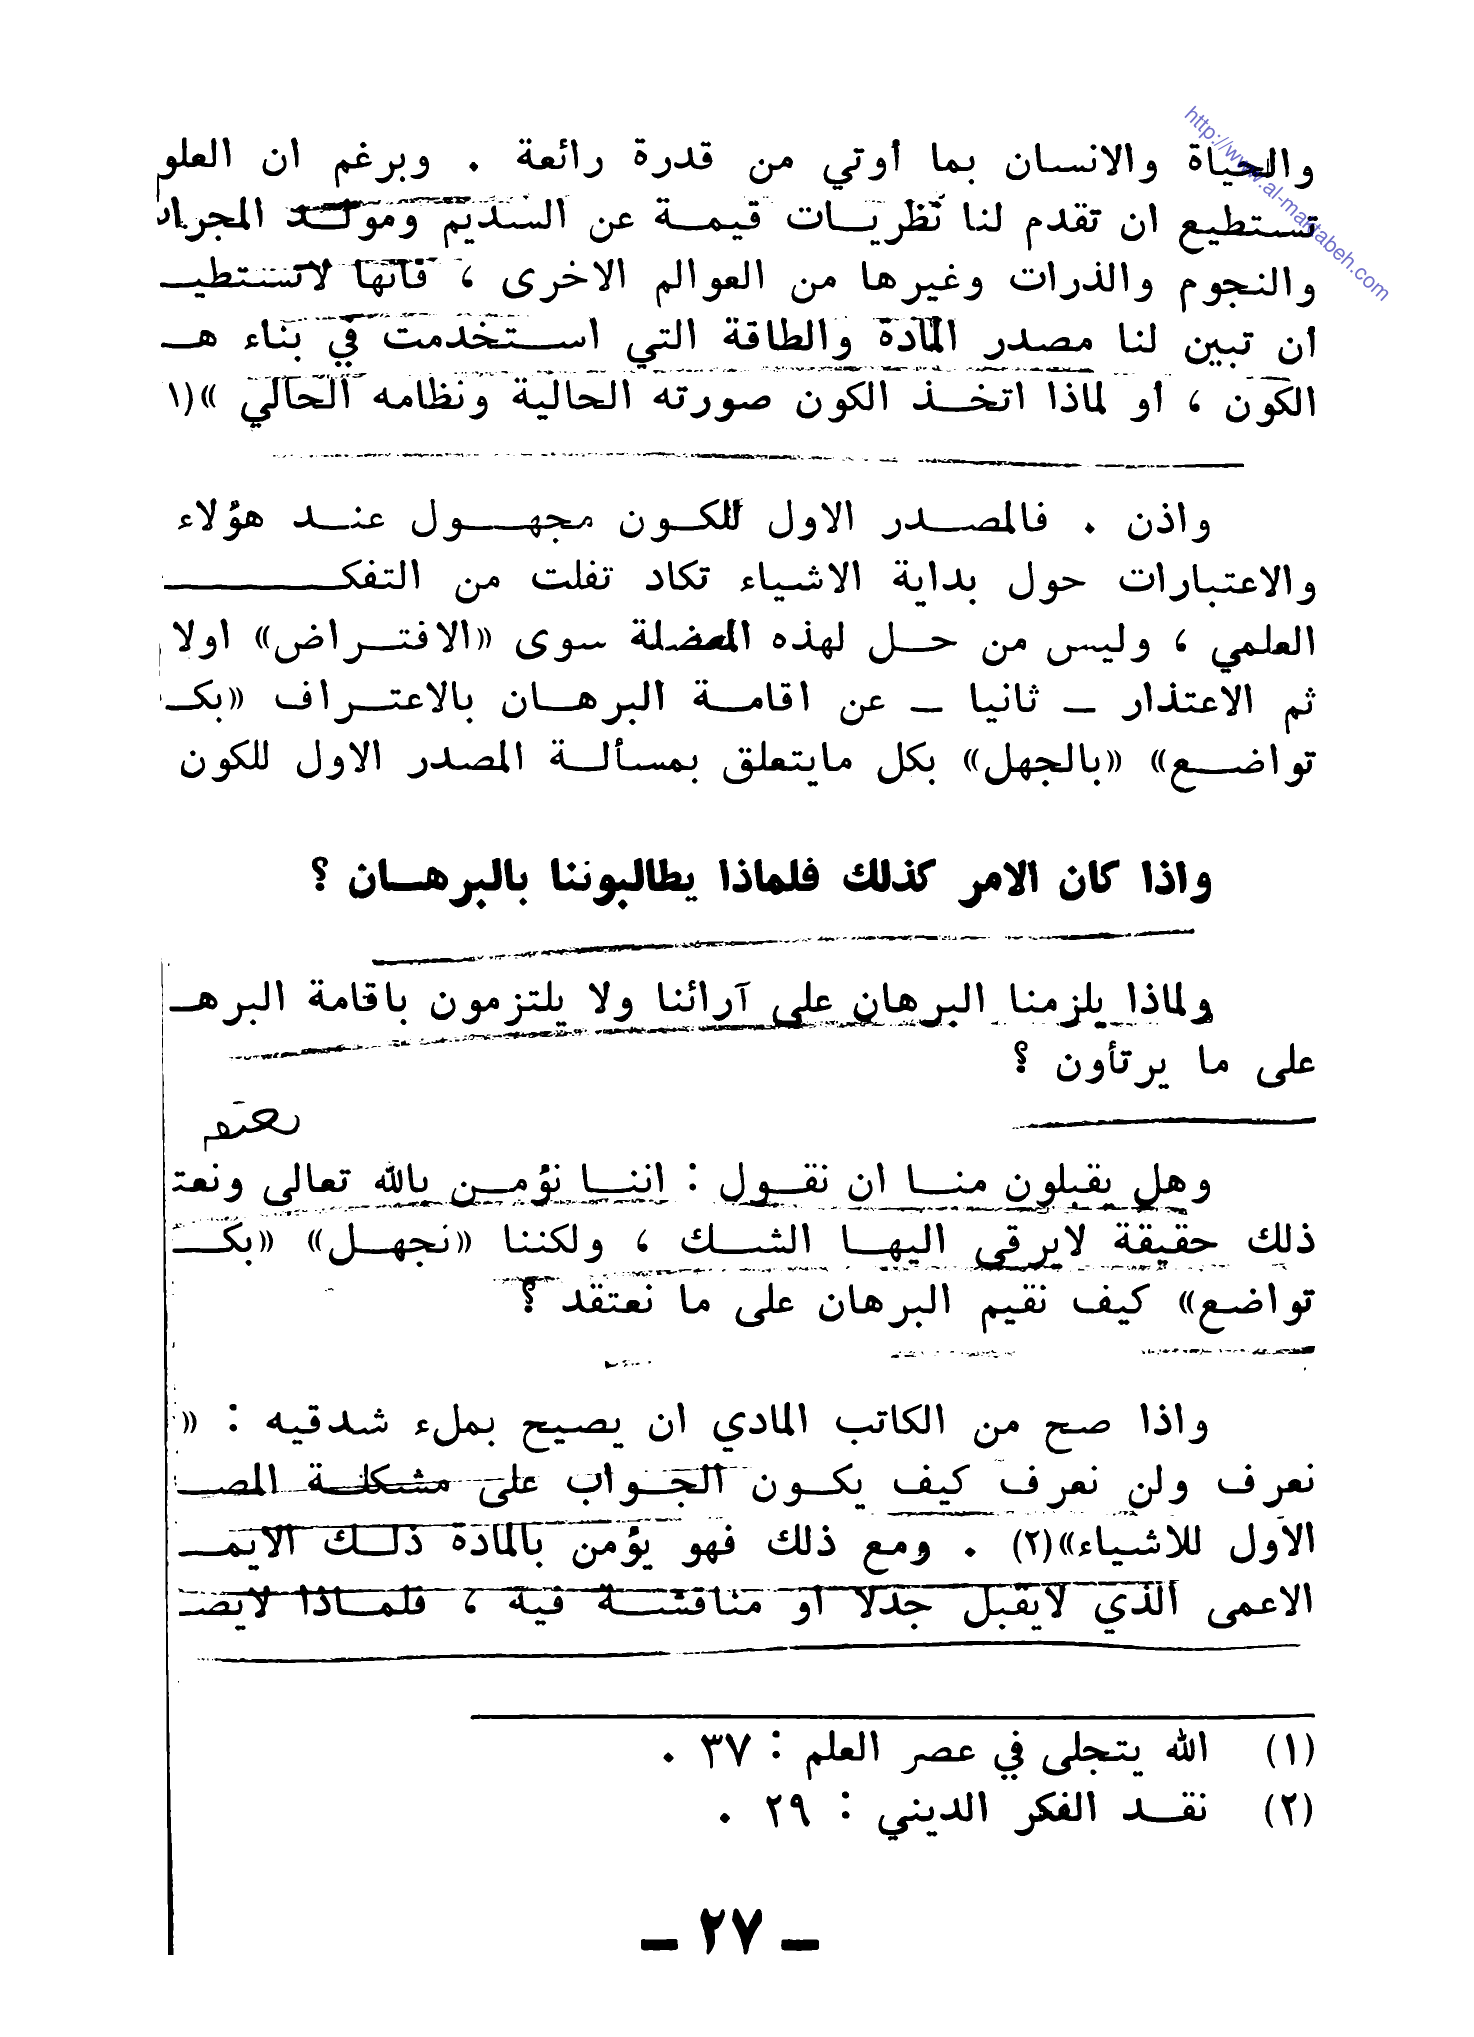 http://www.al-maktabeh.com
والحياة والانسان بما أوتي من قدرة رائعة . وبرغم ان العلو
تستطيع ان تقدم لنا نظريات قيمة عن السديم ومولد المجرات
والنجوم والذرات وغيرها من العوالم الاخرى ، فانها لاتستطيـ
ان تبين لنا مصدر المادة والطاقة التي استخدمت في بناء هـ
الكون ، أو لماذا اتخذ الكون صورته الحالية ونظامه الحالي »(١
واذن . فالمصدر الاول للكون مجهول عند هؤلاء
والاعتبارات حول بداية الاشياء تكاد تفلت من التفكـ
العلمي ، وليس من حل لهذه المعضلة سوى «الافتراض» اولا
ثم الاعتذار ــ ثانيا ــ عن اقامة البرهان بالاعتراف «بكـ
تواضع» «بالجهل» بكل مايتعلق بمسألة المصدر الاول للكون
واذا كان الامر كذلك فلماذا يطالبوننا بالبرهان ؟
ولماذا يلزمنا البرهان على آرائنا ولا يلتزمون باقامة البرهـ
على ما يرتأون ؟
وهل يقبلون منا ان نقول : اننا نؤمن بالله تعالى ونعتـ
ذلك حقيقة لايرقى اليها الشك ، ولكننا «نجهل» «بكـ
تواضع» كيف نقيم البرهان على ما نعتقد ؟
واذا صح من الكاتب المادي ان يصيح بملء شدقيه : «
نعرف ولن نعرف كيف يكون الجواب على مشكلة المصـ
الاول للاشياء»(٢) . ومع ذلك فهو يؤمن بالمادة ذلك الايمـ
الاعمى الذي لايقبل جدلا او مناقشة فيه ، فلماذا لايصـ
(١) الله يتجلى في عصر العلم : ٣٧ .
(٢) نقد الفكر الديني : ٢٩ .
ــ ٢٧ ــ